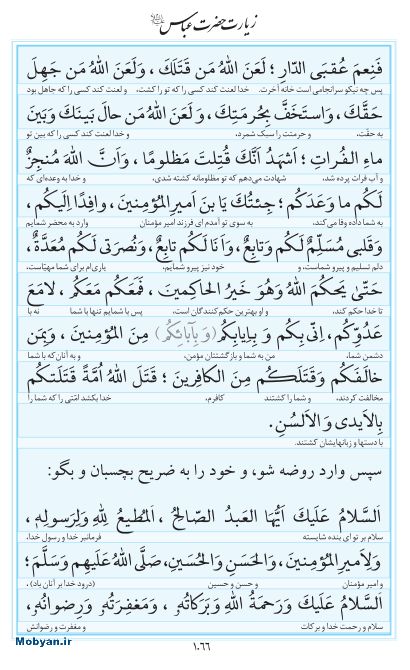 زیارت حضرت عباس
فَنِعمَ عُقبَی الدّارِ ؛ لَعَنَ اللهُ مَن قَتَلَكَ ، وَلَعَنَ اللهُ مَن جَهِلَ
پس چه نیکو سرانجامی است خانه آخرت. خدا لعنت کند کسی را که تو را کشت، و لعنت کند کسی را که جاهل بود
حَقَّكَ، وَاستَخَفَّ بِحُرمَتِكَ، وَلَعَنَ اللهُ مَن حالَ بَینَكَ وَبَینَ
به حقّت، و حرمتت را سبک شمرد. و خدا لعنت کند کسی را که بین تو
ماءِ الفُراتِ ؛ اَشهَدُ اَنَّكَ قُتِلتَ مَظلومًا ، وَاَنَّ اللهَ مُنجِزٌ
و آب فرات پرده شد، شهادت می‌دهم که تو مظلومانه کشته شدی، و خدا به وعده‌ای که
لَكُم ما وَعَدَكُم ؛ جِئتُكَ یَا بنَ اَمیرِ المُؤمِنینَ ، وافِدًا اِلَیكُم ،
به شما داده وفا می‌کند. به سوی تو آمدم ای فرزند امیر مؤمنان وارد به محضر شمایم
وَقَلبی مُسَلِّمٌ لَكُم وَتابِعٌ، وَاَنَا لَكُم تابِعٌ، وَنُصرَتی لَكُم مُعَدَّةٌ،
دلم تسلیم و پیرو شماست، و خود نیز پیرو شمایم. یاری‌ام برای شما مهیّاست.
حَتّیٰ یَحكُمَ اللهُ وَهُوَ خَیرُ الحاكِمینَ ، فَمَعَكُم مَعَكُم ، لامَعَ
تا خدا حکم کند، و او بهترین حکم کنندگان است، پس با شمایم تنها با شما نه با
عَدُوِّكُم، اِنّی بِكُم وَ بِاِیابِكُم (وَ بِآبائِكُم) مِنَ المُؤمِنینَ، وَبِمَن
دشمن شما، من به شما و بازگشتتان مؤمن، و به آنان که با شما
خالَفَكُم وَقَتَلَكُم مِنَ الكافِرینَ ؛ قَتَلَ اللهُ اُمَّةً قَتَلَتكُم
مخالفت کردند، و شما را کشتند کافرم، خدا بکشد امّتی را که شما را
بِالاَیدی وَالاَلسُنِ.
با دستها و زبانهایشان کشتند.
سپس وارد روضه شو، و خود را به ضریح بچسبان و بگو:
اَلسَّلامُ عَلَیكَ اَیُّهَا العَبدُ الصّالِحُ ، اَلمُطیعُ لِلّٰهِ وَلِرَسولِهٖ،
سلام بر تو ای بنده شایسته فرمانبر خدا و رسول خدا،
وَلِاَمیرِ المُؤمِنینَ، وَالحَسَنِ وَالحُسَینِ، صَلَّی اللهُ عَلَیهِم وَسَلَّمَ ؛
و امیر مؤمنان و حسن و حسین (درود خدا بر آنان باد) .
اَلسَّلامُ عَلَیكَ وَرَحمَةُ اللهِ وَبَرَكاتُهٗ ، وَمَغفِرَتُهٗ وَرِضوانُهٗ،
سلام و رحمت خدا و برکات و مغفرت و رضوانش
۱۰۶۶
Mobyan.ir